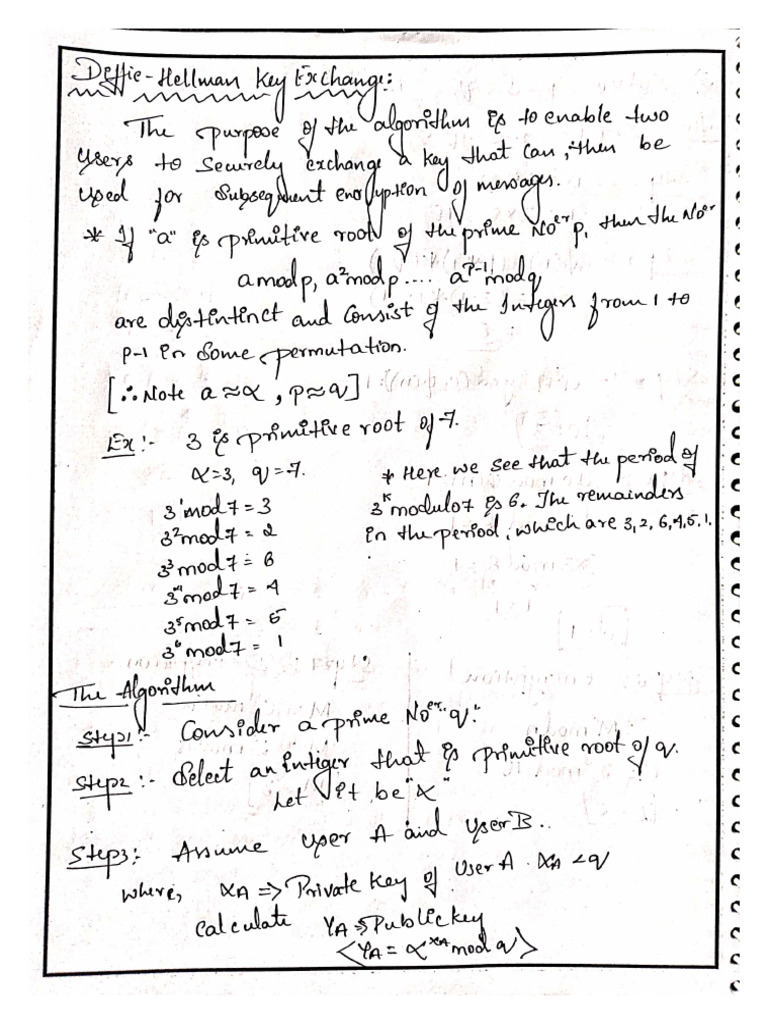 Deffie-Hellman Key Exchange:
The purpose of the algorithm is to enable two
users to securely exchange a key that can, then be
used for subsequent encryption of messages.
* If "a" is primitive root of the prime Noer p, then the Noer
a mod p, a² mod p .... a^p-1 mod q
are distintinct and consist of the Integers from 1 to
p-1 in some permutation.
[∴ Note a ≈ α , p ≈ q]
Ex:- 3 is primitive root of 7.
α=3, q=7.
3¹ mod 7 = 3
3² mod 7 = 2
3³ mod 7 = 6
3⁴ mod 7 = 4
3⁵ mod 7 = 5
3⁶ mod 7 = 1
* Here we see that the period of
3^k modulo 7 is 6. The remainders
in the period, which are 3, 2, 6, 4, 5, 1.
The Algorithm
Step1:- Consider a prime Noer "q".
Step2:- Select an integer that is primitive root of q.
Let it be "α"
Step3:- Assume user A and user B..
where, XA => Private Key of User A . XA < q
calculate YA => Public key
<YA = α^XA mod q>